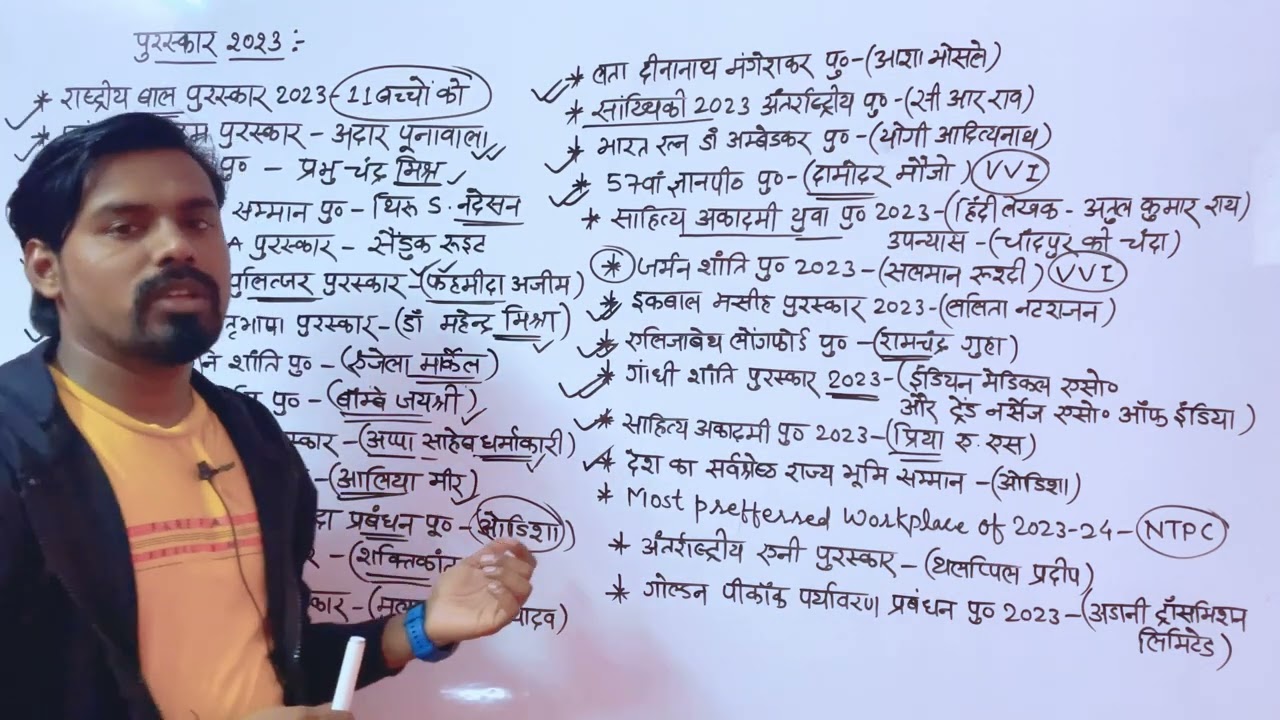 पुरस्कार २०२३:-
* राष्ट्रीय बाल पुरस्कार 2023-11 बच्चों को
* पुरस्कार - अदार पूनावाला
पु० - प्रभु चंद्र मिश्र
सम्मान पु० - थिरू S. नदेसन
A पुरस्कार - सैंडुक रूइट
पुलित्जर पुरस्कार-(फॅहमीदा अजीम)
तृभाषा पुरस्कार-(डॉ महेन्द्र मिश्रा)
शांति पु० - (एंजेला मार्केल)
पु० - (बॉम्बे जयश्री)
स्कार -(अप्पा साहेब धर्माकारी)
- (आलिया मीर)
दा प्रबंधन पू० - (ओडिशा)
- (शक्तिकांत
कार-( यादव)
* लता दीनानाथ मंगेशकर पु०-(आशा भोसले)
* सांख्यिकी 2023 अंतर्राष्ट्रीय पु० -(सी आर राव)
* भारत रत्न डॉ अम्बेडकर पु० - (योगी आदित्यनाथ)
* 57वां ज्ञानपी० पु० -(दामोदर मौजो) VVI
* साहित्य अकादमी युवा पु० 2023-(हिंदी लेखक - अतुल कुमार राय)
उपन्यास -(चाँदपुर की चंदा)
* जर्मन शांति पु० 2023-(सलमान रूश्दी) VVI
* इकबाल मसीह पुरस्कार 2023-(ललिता नटराजन)
* एलिजाबेथ लोंगफोर्ड पु० -(रामचंद्र गुहा)
* गांधी शांति पुरस्कार 2023-(इंडियन मेडिकल एसो०
और ट्रेंड नर्सेज एसो० ऑफ इंडिया)
* साहित्य अकादमी पु० 2023-(प्रिया ए. एस)
* देश का सर्वश्रेष्ठ राज्य भूमि सम्मान -(ओडिशा)
* Most prefferred workplace of 2023-24 - NTPC
* अंतर्राष्ट्रीय एनी पुरस्कार -(थलप्पिल प्रदीप)
* गोल्डन पीकॉक पर्यावरण प्रबंधन पु० 2023-(अडानी ट्रॉसमिशन
लिमिटेड)